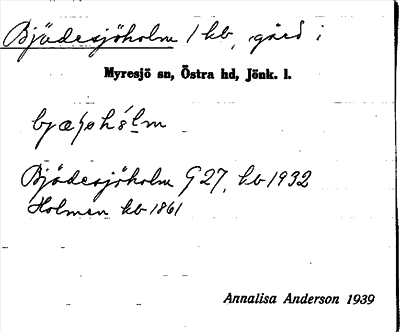 Bjädesjöholm 1 kb, gård i
Myresjö sn, Östra hd, Jönk. l.
Bjädesjöholm G 27, kb 1932
Holmen kb 1861
Annalisa Anderson 1939